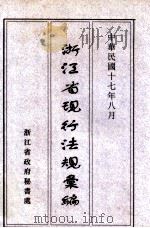 中華民國十七年八月
浙江省現行法規彙編
浙江省政府秘書處